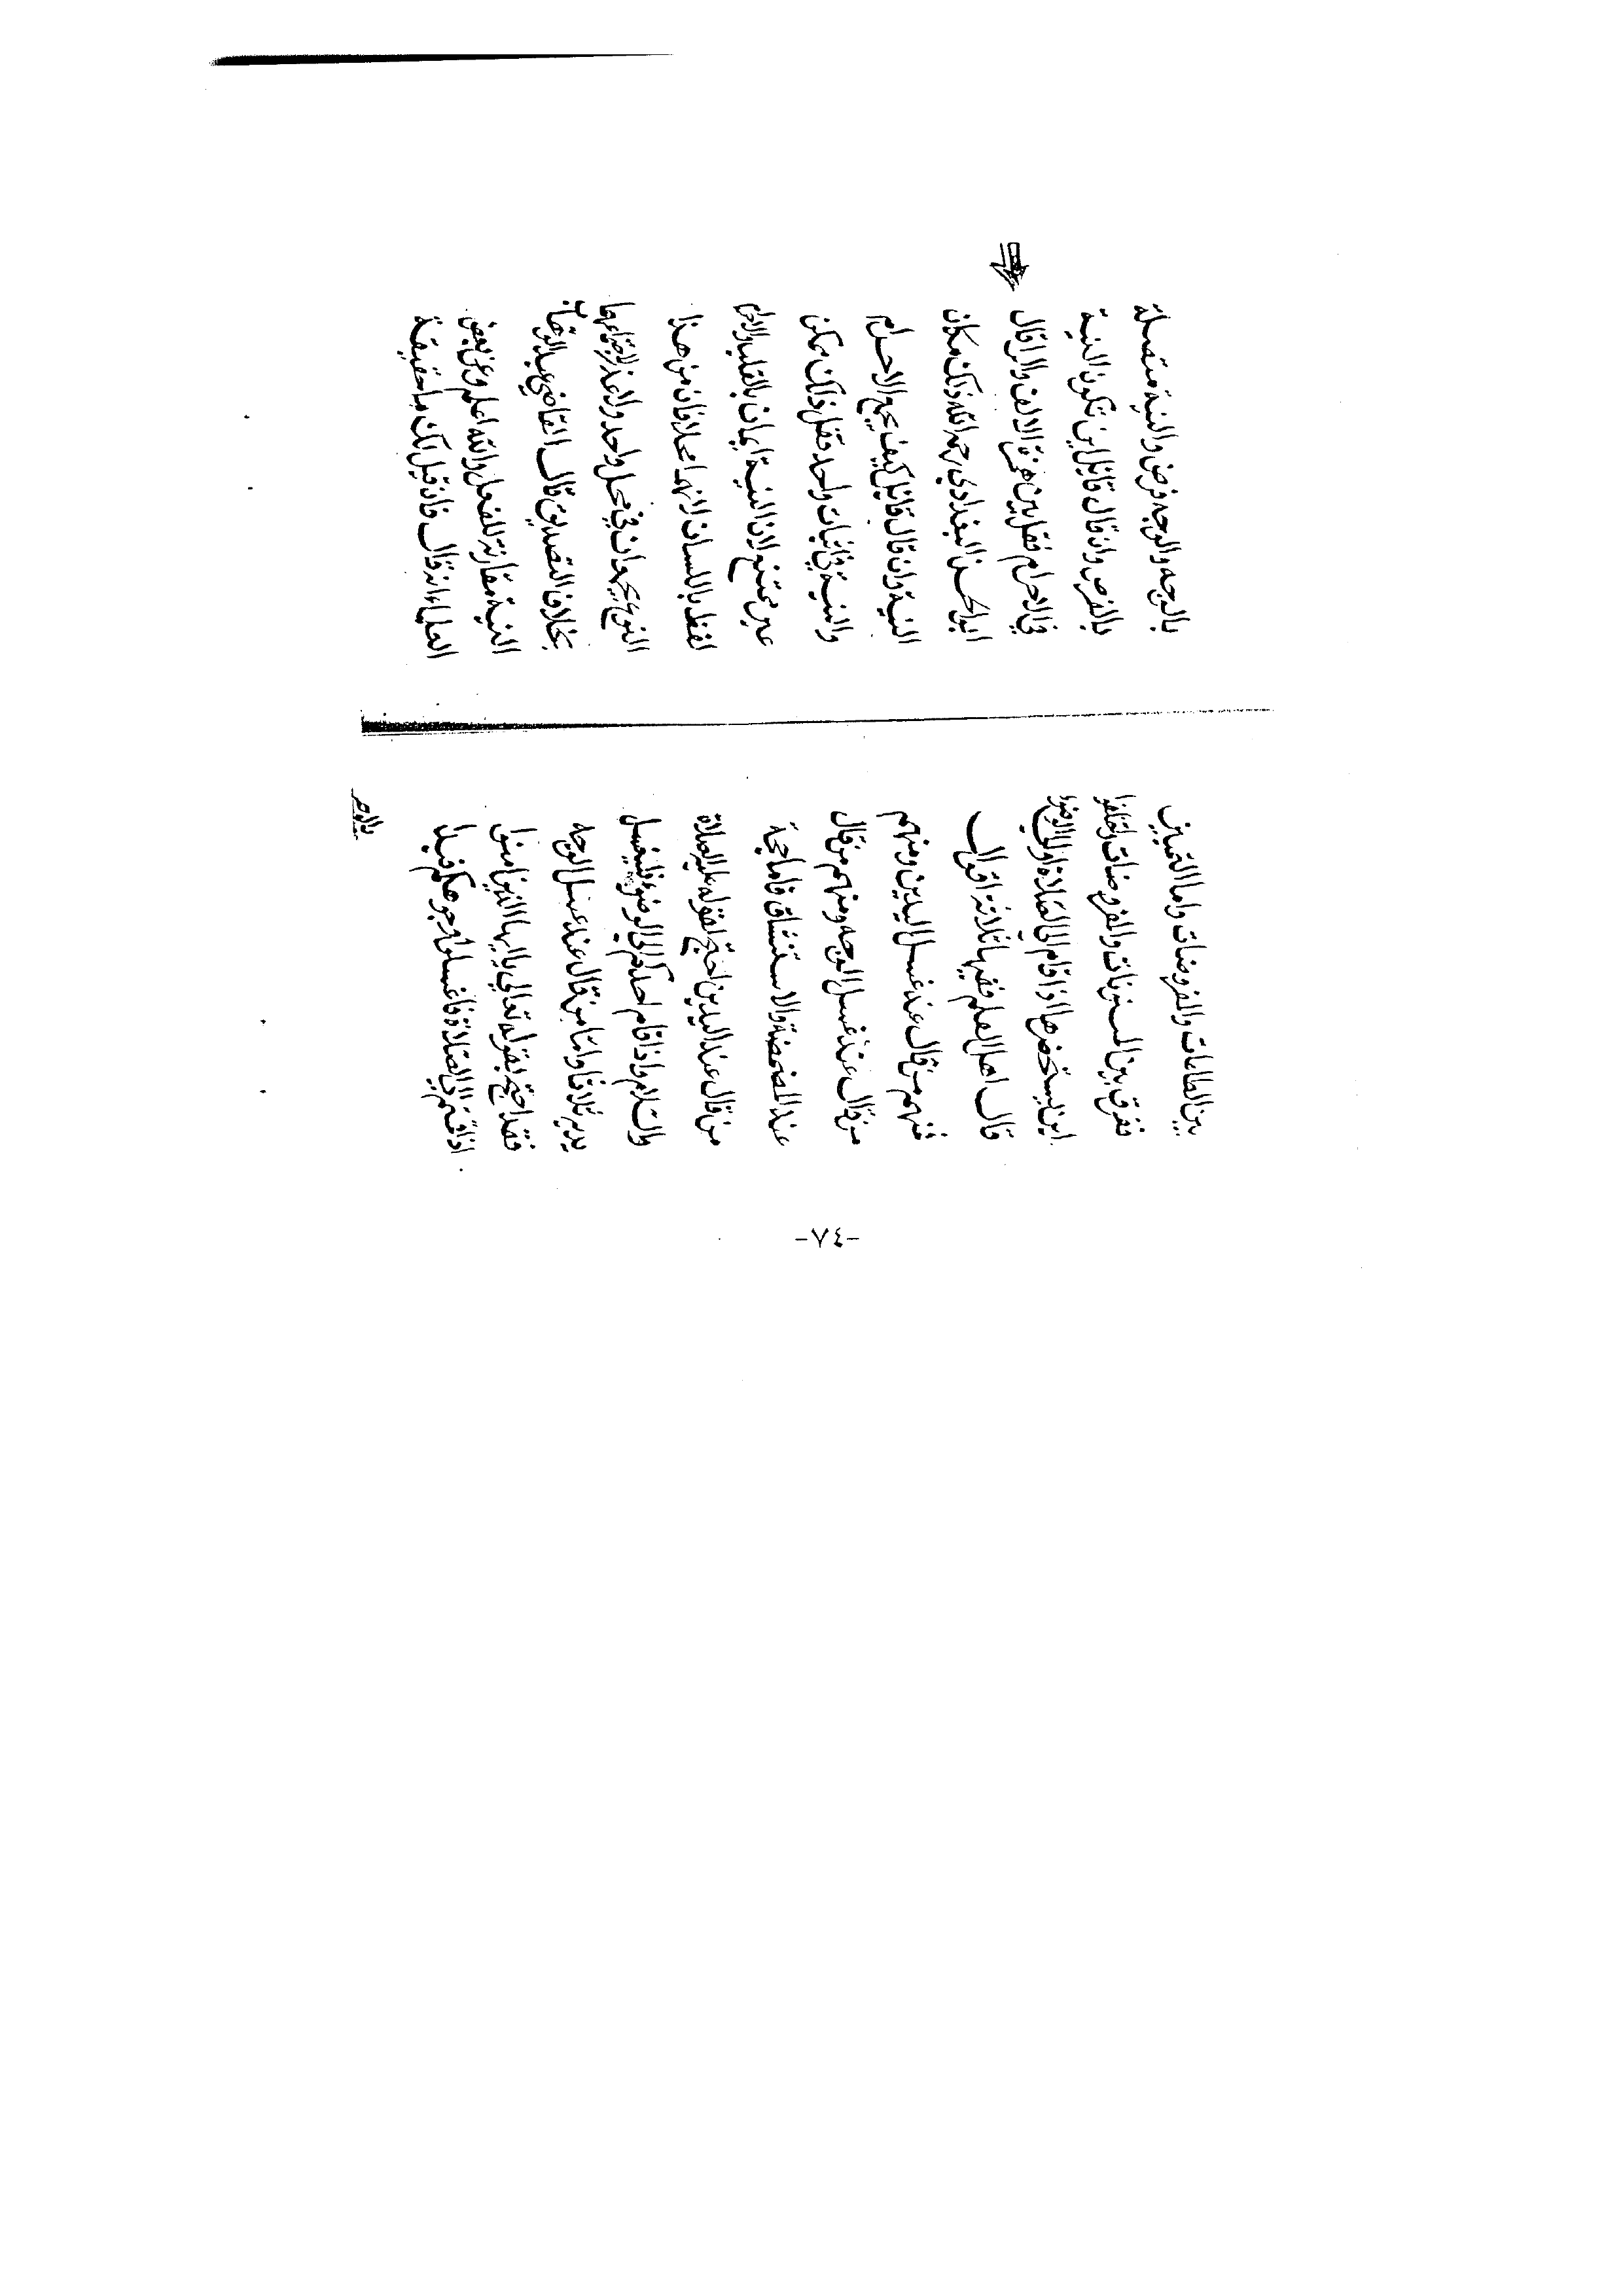 بين الطاعات والمفروضات واما التعيين
ففرق بين المسنونات والمفروضات واختلفوا
اين يستحضرها اذا قام الى الصلاة او الى الوضوء
قال اهل العلم ففيها ثلاثة اقوال
فمنهم من قال عند غسل اليدين ومنهم
من قال عند غسل الوجه ومنهم من قال
عند المضمضة والاستنشاق فاما حجة
من قال عند اليدين احتج لقوله عليه الصلاة
والسلام واذا قام احدكم الى الوضوء فليغسل
يديه ثلاثا واما من قال عند غسل الوجه
فقد احتج بقوله تعالى يا ايها الذين امنوا
اذا قمتم الى الصلاة فاغسلوا وجوهكم فبدا
بالوجه
بالوجه والوجه فرض والنية متصلة
بالفرض وان قال قائل اين تكون النية
في الاحرام فقل بين همزة الالف والراء قال
ابو الحسن البغدادي رحمه الله ذلك مكان
النية وان قال قائل كيف يجمع الاحرام
والنية في اثبات واحد فقل ذلك ممكن
غير ممتنع لان النية ايمان بالقلب والاحرام
لفظ باللسان لانهما محلان فان من هذا
النوع يجمعان في محل واحد ولا عذر لاجتماعهما
بخلاف التصديق قال القاضي عبد الوهاب
النية مقارنة للفعل والله اعلم وعن بعض
العلماء انه قال فان قيل لك ما حقيقة
-٧٤-